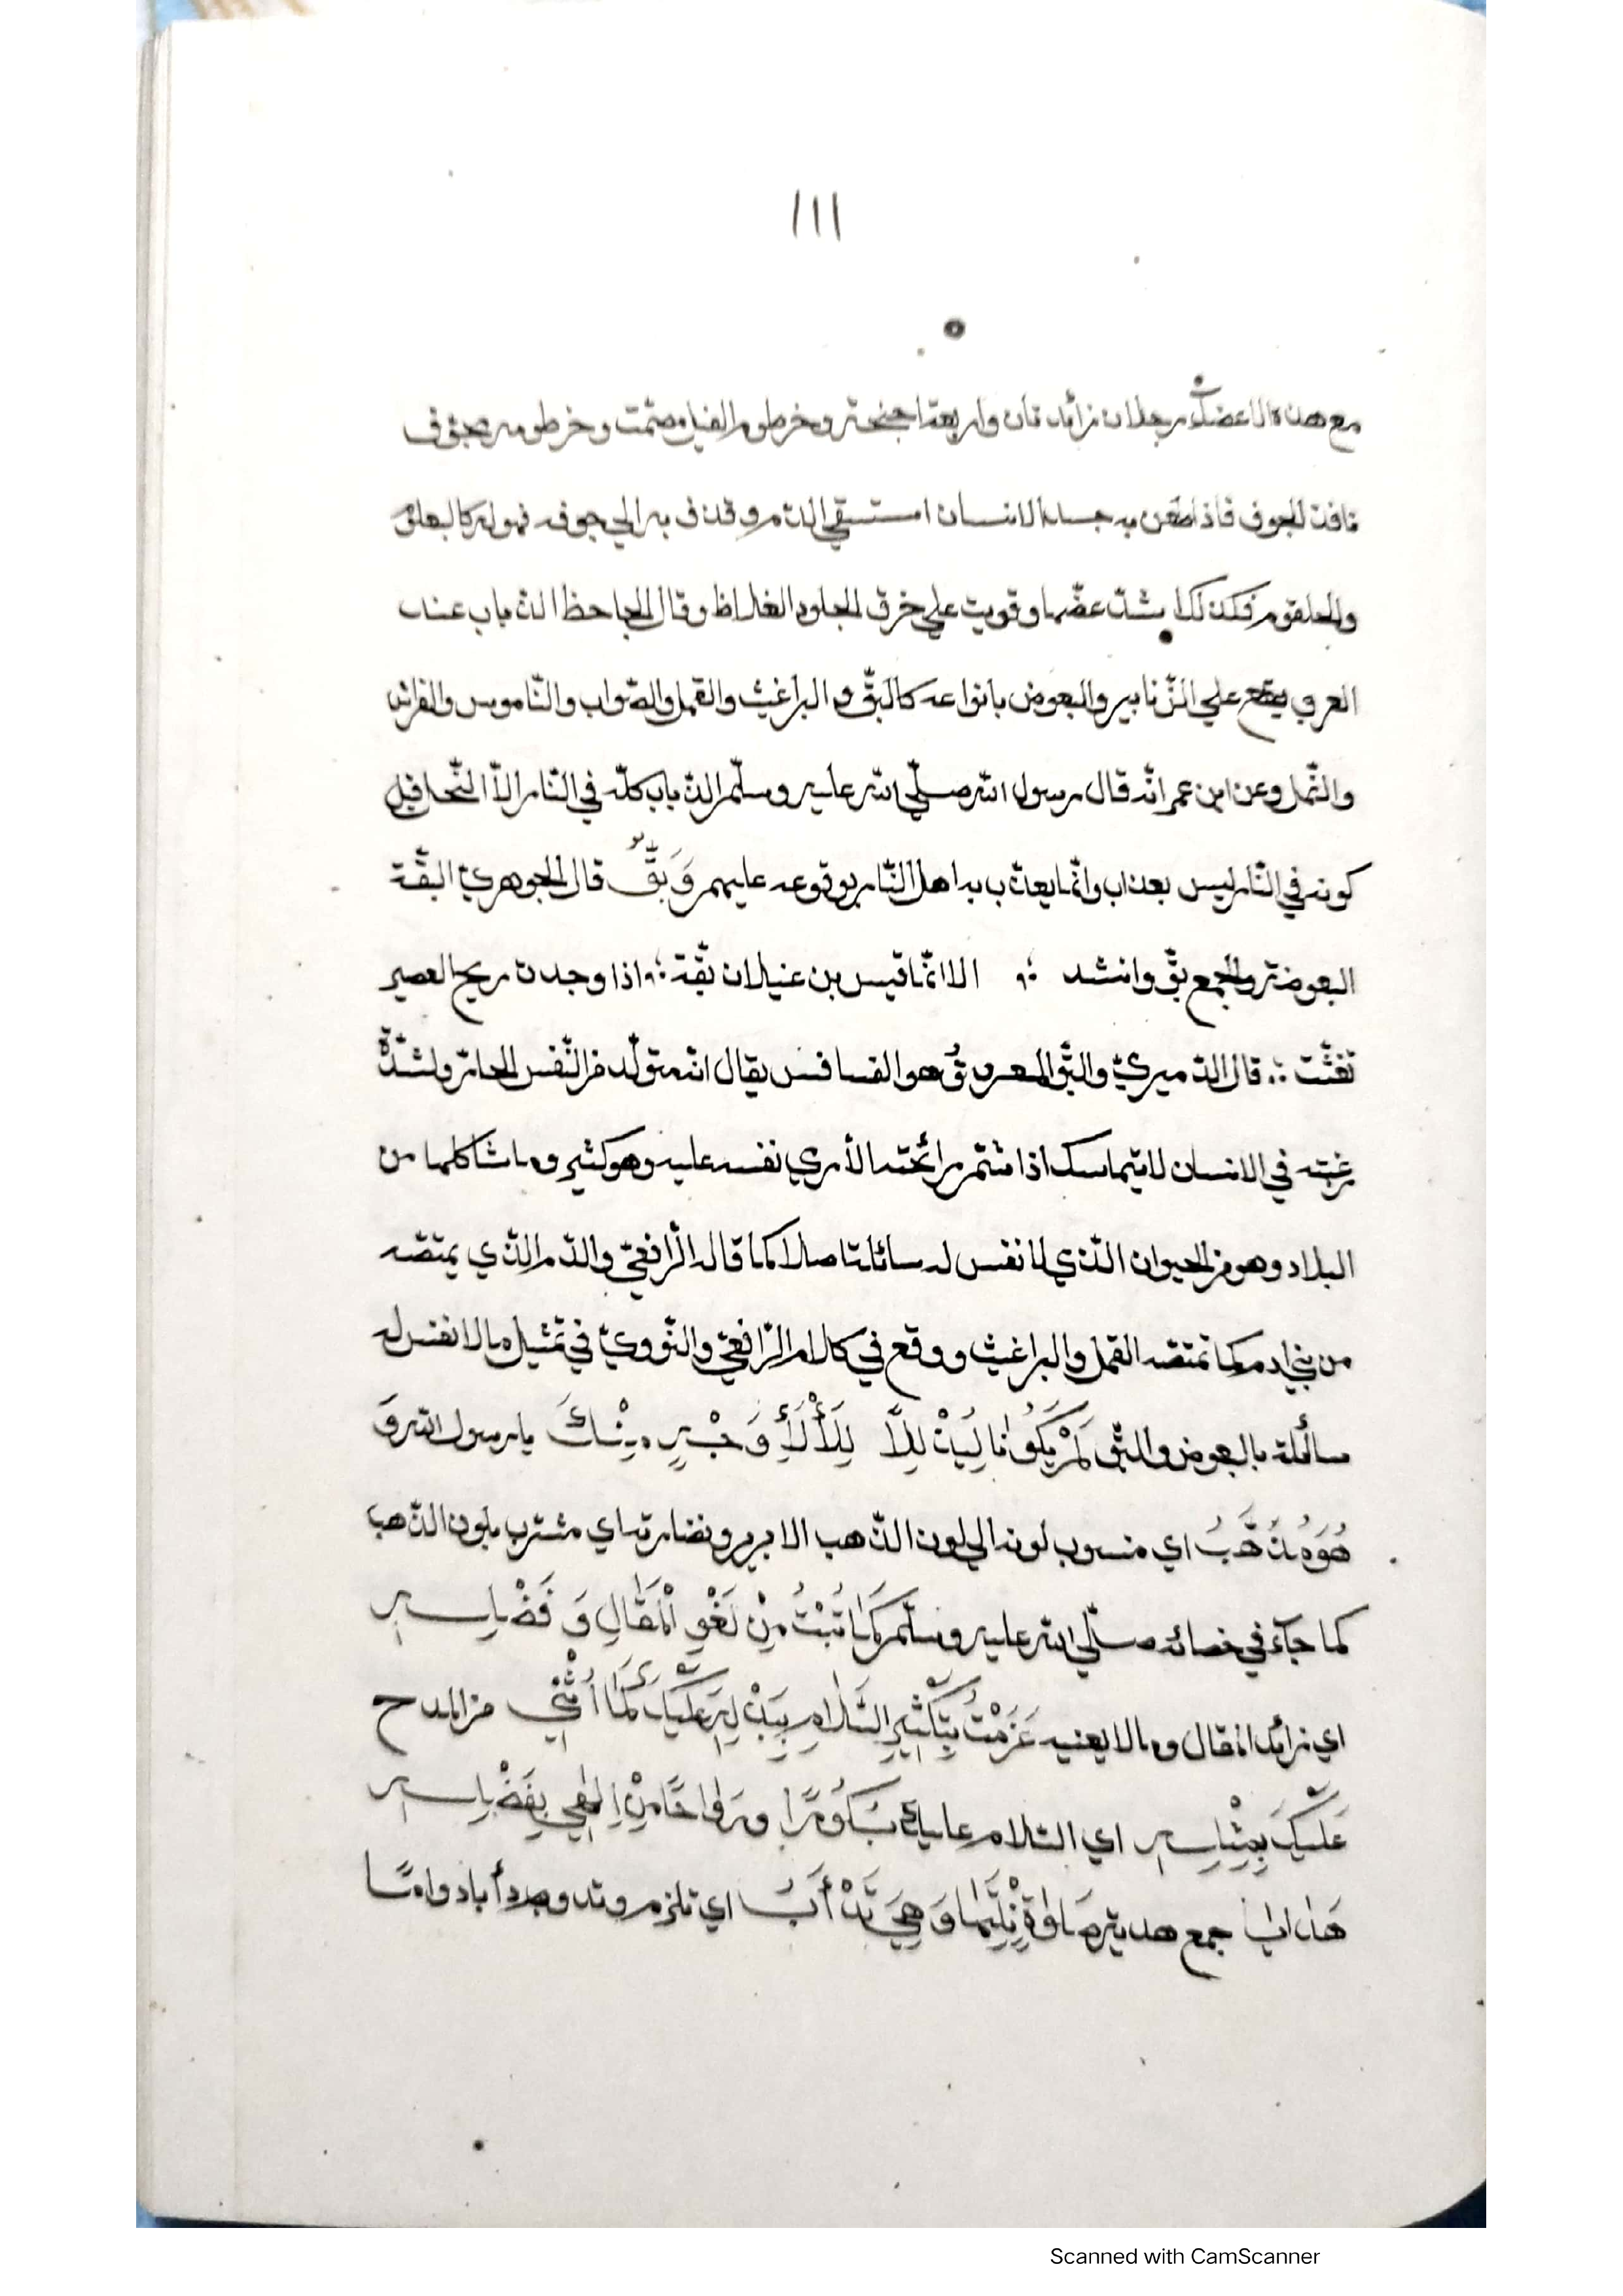 ١١١
مع هذه الاعضاء رجلان زائدتان واربعة اجنحة وخرطوم الفيل مصمّت وخرطومه مجوّف
نافذ للجوف فاذا طعن به جسد الانسان استسقي الدّم وقذف به الي جوفه فهو له كالبعلوم
والحلقوم فكذلك اشتدّ عضّها وقويت علي خرق الجلود الغلاظ وقال الجاحظ الذّباب عند
العرب يقع علي الزّنابير والبعوض بانواعه كالبقّ و البراغيث والقمل والصّواب والنّاموس والفراش
والنّمل وعن ابن عمر انّه قال رسول الله صلّي الله عليه وسلّم الذّباب كلّه في النّار الاّ النّحل قيل
كونه في النّار ليس بعذاب وانّما يعذّب به اهل النّار بوقوعه عليهم وَبَقٌّ قال الجوهريّ البقّة
البعوضة والجمع بقّ وانشد ؞ الا انّما قيس بن عنيلان بقّة ؞ اذا وجدت ريح العصير
تغنّت ؞ قال الدّميريّ والبّق المعروقُ هو الفسافس يقال انّه متولّد من النّفس الحارّ ولشدّة
رغبته في الانسان لا يتماسك اذا شتمّ رائحته الاّ رمي نفسه عليه وهو كثير وما شاكلها من
البلاد وهو من الحيوان الّذي لا نفس له سائلة اصلا كما قاله الرّافعيّ والدّم الّذي يمتصّه
من بني ادم كما تمتصّه القمل والبراغيث ووقع في كلام الرّافعيّ والنّوويّ في تمثيل ما لا نفس له
سائلة بالبعوض والبّق لَمْ يَكُوْنَا لِيَذْ لِلاَّ لِلَأْلَأِ وَجْهٍ مِنْكَ يا رسول الله وَ
هُوَ مُذَهَّبُ اي منسوب لونه الي لون الذّهب الابريز ونضارته اي مشترب بلون الذّهب
كما جآء في خصائه صلّي الله عليه وسلّم كَمَا تُبْتُ مِنْ لَغْوِ الْمَقَالِ وَ فَضْلِهِ
اي زائد المقال وما لا يعنيه عَزَمْتُ بِتَكْثِيرِ السَّلَامِ بِبَذْلِهِ عَلَيْكَ كَمَا أُثْنِي من المدح
عَلَيْكَ بِمِثْلِهِ اي السّلام عليك بُكُوْرًا ورَوَاحًا مِنْ اِلٰهِي بِفَضْلِهِ
هَدَايَا جمع هدية صَلٰوةٍ نِلْتَهَا وَهِيَ تَدْأَبُ اي تلزم وتدوم ابدا دوامًا